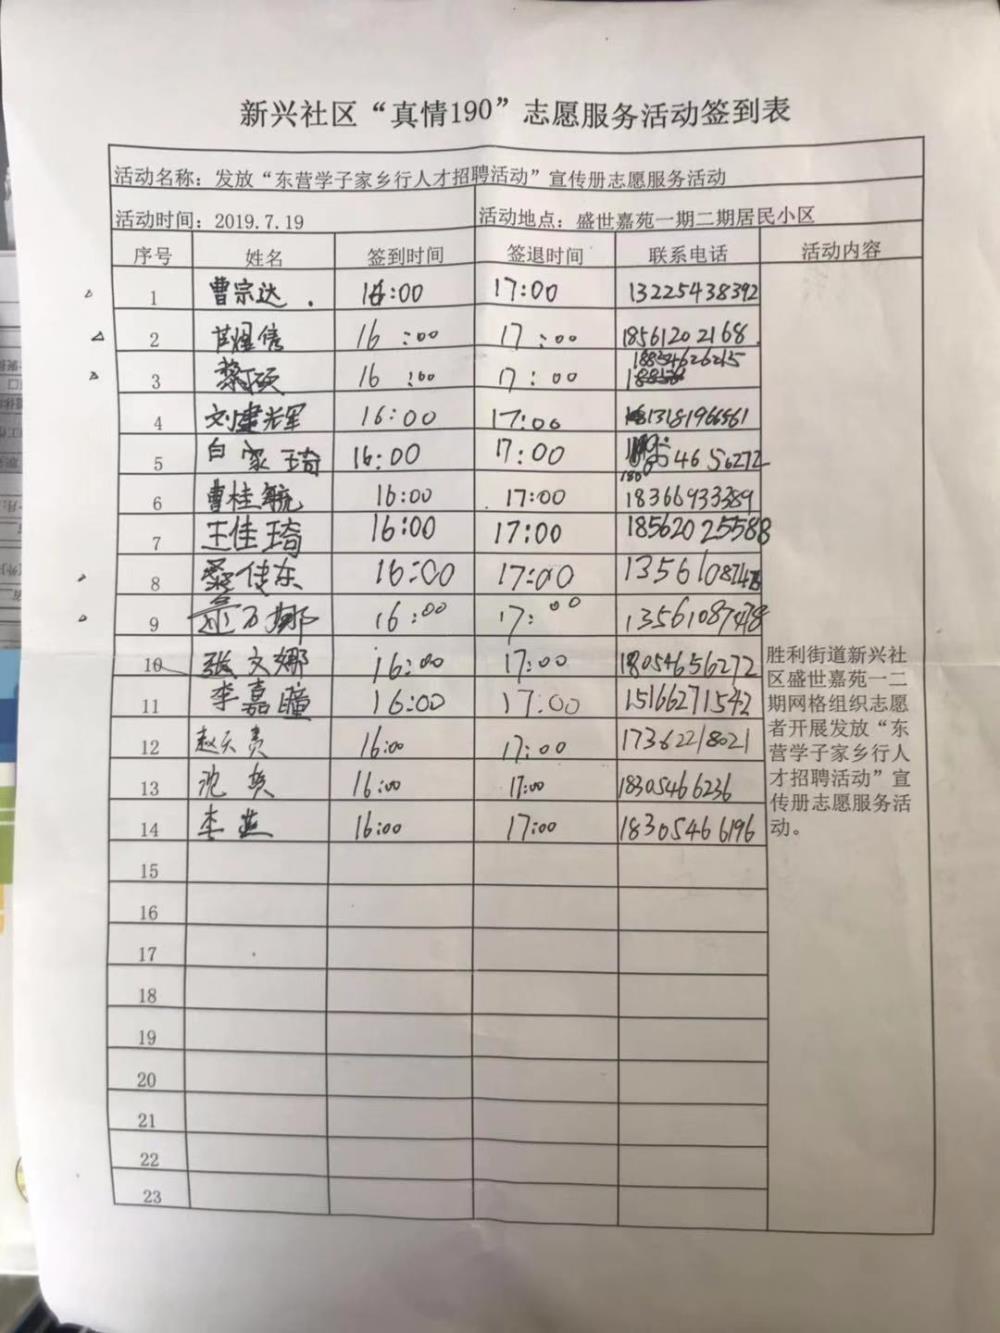 新兴社区“真情190”志愿服务活动签到表
活动名称：发放“东营学子家乡行人才招聘活动”宣传册志愿服务活动
活动时间：2019.7.19 活动地点：盛世嘉苑一期二期居民小区
序号 姓名 签到时间 签退时间 联系电话 活动内容
1 曹宗达 16:00 17:00 13225438392
2 16:00 17:00 18561202168
3 黎硕 16:00 17:00 18854626215
4 刘建军 16:00 17:00 13181966561
5 白家琦 16:00 17:00
6 曹桂毓 16:00 17:00 18366933389
7 王佳琦 16:00 17:00 18562025588
8 佳东 16:00 17:00
9 万娜 16:00 17:00 13561087478
10 张文娜 16:00 17:00 18054656272
11 李嘉瞳 16:00 17:00 15166271542
12 赵天贵 16:00 17:00 17362218021
13 沈英 16:00 17:00 18305466236
14 李燕 16:00 17:00 18305466196
胜利街道新兴社
区盛世嘉苑一二
期网格组织志愿
者开展发放“东
营学子家乡行人
才招聘活动”宣
传册志愿服务活
动。
15
16
17
18
19
20
21
22
23